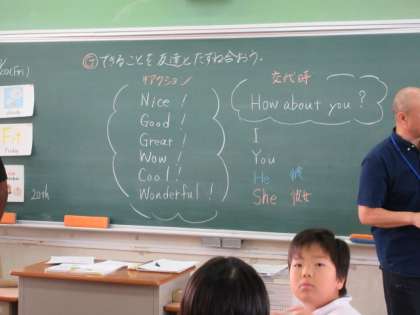 Ⓖ できることを友達とたずね合おう。
リアクション
Nice !
Good !
Great !
Wow !
Cool !
Wonderful !
交代時
How about you ?
I
You
He 彼
She 彼女
(Fri)
cloudy
Fri
Friday
20th